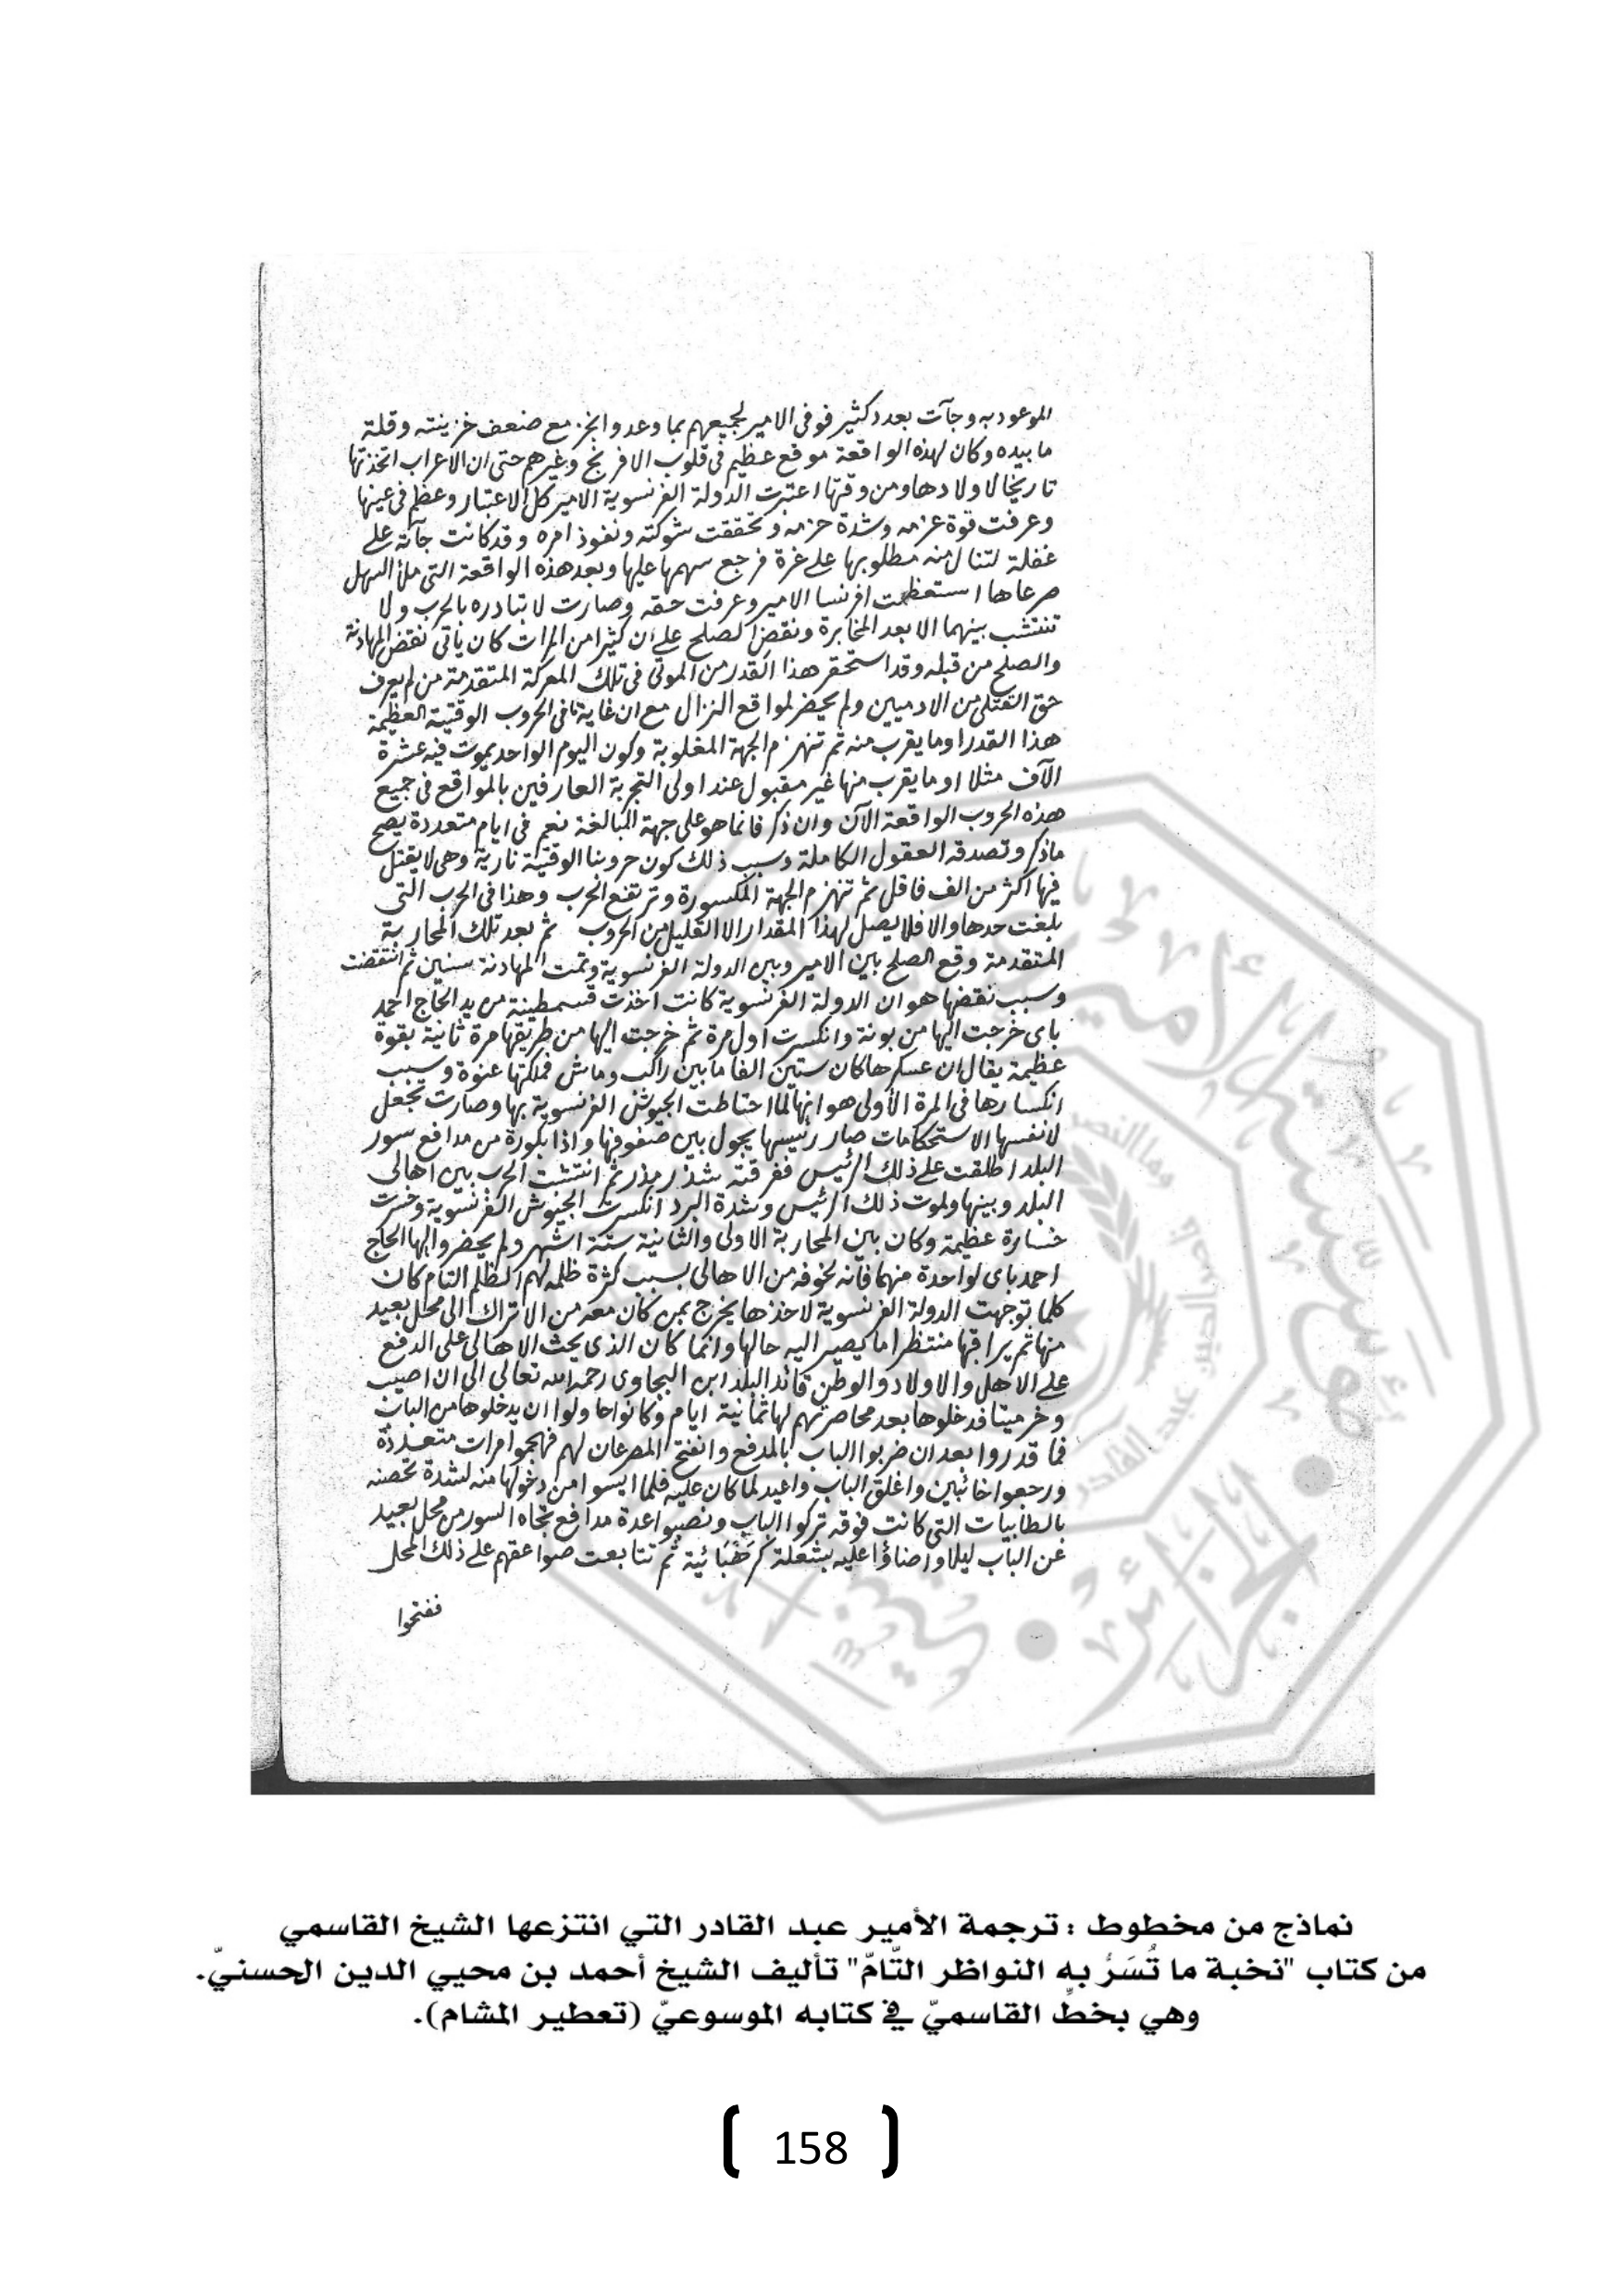 الموعود به وجآت بعدد كثير فوفى الامير لجميعهم بما وعد وانجز مع ضعف خزينته وقلة
ما بيده وكان لهذه الواقعة موقع عظيم فى قلوب الافرنج وغيرهم حتى ان الاعراب اتخذتها
تاريخا لاولادها ومن وقتها اعتبرت الدولة الفرنسوية الامير كل الاعتبار وعظم فى عينها
وعرفت قوة عزمه وشدة حزمه وتحققت شوكته ونفوذ امره وقد كانت جآته على
غفلة لتنال منه مطلوبها على غرة فرجع سهمها عليها وبعد هذه الواقعة التى ملأ السهل
صرعاها استعظمت افرنسا الامير وعرفت حقه وصارت لا تبادره بالحرب ولا
تنتشب بينهما الا بعد المخابرة ونقض الصلح على ان كثيرا من المرات كان ياتى نقض المهادنة
والصلح من قبله وقد استحقر هذا القدر من الموتى فى تلك المعركة المتقدمة من لم يعرف
حق القتلى من الادميين ولم يحضر لمواقع النزال مع ان غاية ما فى الحروب الوقتية العظيمة
هذا القدر او ما يقرب منه ثم تنهزم الجهة المغلوبة وكون اليوم الواحد يموت فيه عشرة
الآف مثلا او ما يقرب منها غير مقبول عند اولى التجربة العارفين بالمواقع فى جميع
هذه الحروب الواقعة الآن وان ذكر فانما هو على جهة المبالغة نعم فى ايام متعددة يصح
ماذكر وتصدقه العقول الكاملة وسبب ذلك كون حروبنا الوقتية نارية وهى لا يقتل
فيها اكثر من الف فاقل ثم تنهزم الجهة المكسورة وترتفع الحرب وهذا فى الحرب التى
بلغت حدها والا فلا يصل لهذا المقدار الا القليل من الحروب ثم بعد تلك المحاربة
المتقدمة وقع الصلح بين الامير وبين الدولة الفرنسوية وتمت المهادنة سنين ثم انتقضت
وسبب نقضها هو ان الدولة الفرنسوية كانت اخذت قسمطينة من يد الحاج احمد
باى خرجت اليها من بونة وانكسرت اول مرة ثم خرجت اليها من طريقها مرة ثانية بقوة
عظيمة يقال ان عسكرها كان ستين الفا ما بين راكب وماش فملكتها عنوة وسبب
انكسارها فى المرة الأولى هو انها لما احتاطت الجيوش الفرنسوية بها وصارت تجعل
لانفسها الاستحكامات صار رئيسها يجول بين صفوفها واذا بكورة من مدافع سور
البلد اطلقت على ذلك الرئيس ففرقته شذر مذر ثم انتشبت الحرب بين اهالى
البلد وبينها ولموت ذلك الرئيس وشدة البرد انكسرت الجيوش الفرنسوية وخسرت
خسارة عظيمة وكان بين المحاربة الاولى والثانية ستة اشهر ولم يحضر واليها الحاج
احمد باى لواحدة منهما فانه لخوفه من الاهالى بسبب كثرة ظلمه لهم الظلم التام كان
كلما توجهت الدولة الفرنسوية لاخذها يخرج بمن كان معه من الاتراك الى محل بعيد
منها ثم يراقبها منتظرا ما يصير اليه حالها وانما كان الذى يحث الاهالى على الدفع
على الاهل والاولاد والوطن قائد البلد ابن البجاوى رحمه الله تعالى الى ان اصيب
وخر ميتا فدخلوها بعد محاصرتهم لها ثمانية ايام وكانوا حاولوا ان يدخلوها من الباب
فما قدروا بعد ان ضربوا الباب بالمدفع وانفتح المصرعان لهم فهجموا مرات متعددة
ورجعوا خائبين واغلق الباب واعيد لما كان عليه فلما ايسوا من دخولها منه لشدة تحصنه
بالطابيات التى كانت فوقه تركوا الباب ونصبوا عدة مدافع تجاه السور من محل بعيد
عن الباب ليلا واضاؤا عليه بشعلة ثم تتابعت صواعقهم على ذلك المحل
ففتحوا
نماذج من مخطوط : ترجمة الأمير عبد القادر التي انتزعها الشيخ القاسمي
من كتاب "نخبة ما تُسَرُّ به النواظر التّامّ" تأليف الشيخ أحمد بن محيي الدين الحسنيّ.
وهي بخطِّ القاسميّ في كتابه الموسوعيّ (تعطير المشام).
158